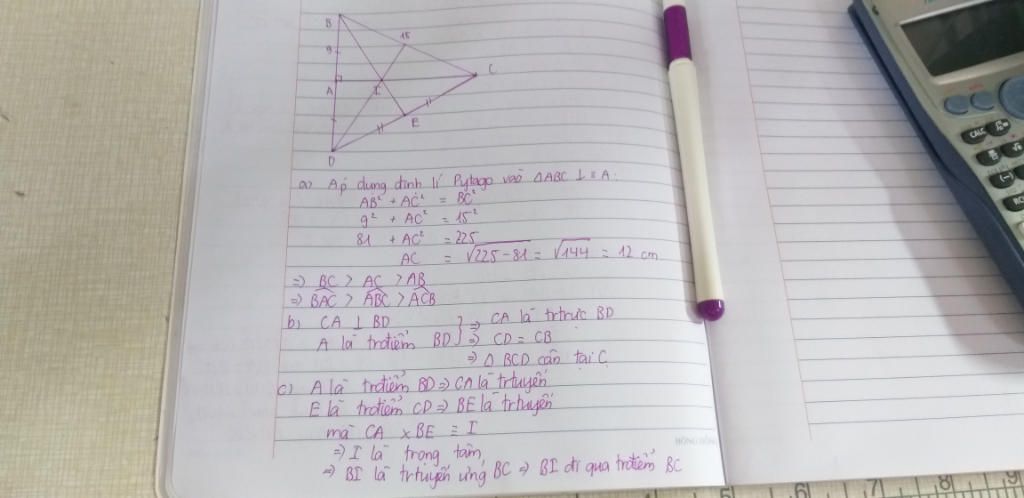 B
15
9
C
A
I
E
D
a) Áp dụng định lí Pytago vào ΔABC ⊥ tại A:
AB² + AC² = BC²
9² + AC² = 15²
81 + AC² = 225
AC = √225-81 = √144 = 12 cm
=> BC > AC > AB
=> BAC > ABC > ACB
b) CA ⊥ BD
A là trđiểm BD
=> CA là trtrực BD
=> CD = CB
=> Δ BCD cân tại C
c) A là trđiểm BD => CA là trtuyến
E là trđiểm CD => BE là trtuyến
mà CA x BE ≡ I
=> I là trọng tâm
=> BI là trtuyến ứng BC => BI đi qua trđiểm BC
CALC
7
8
9